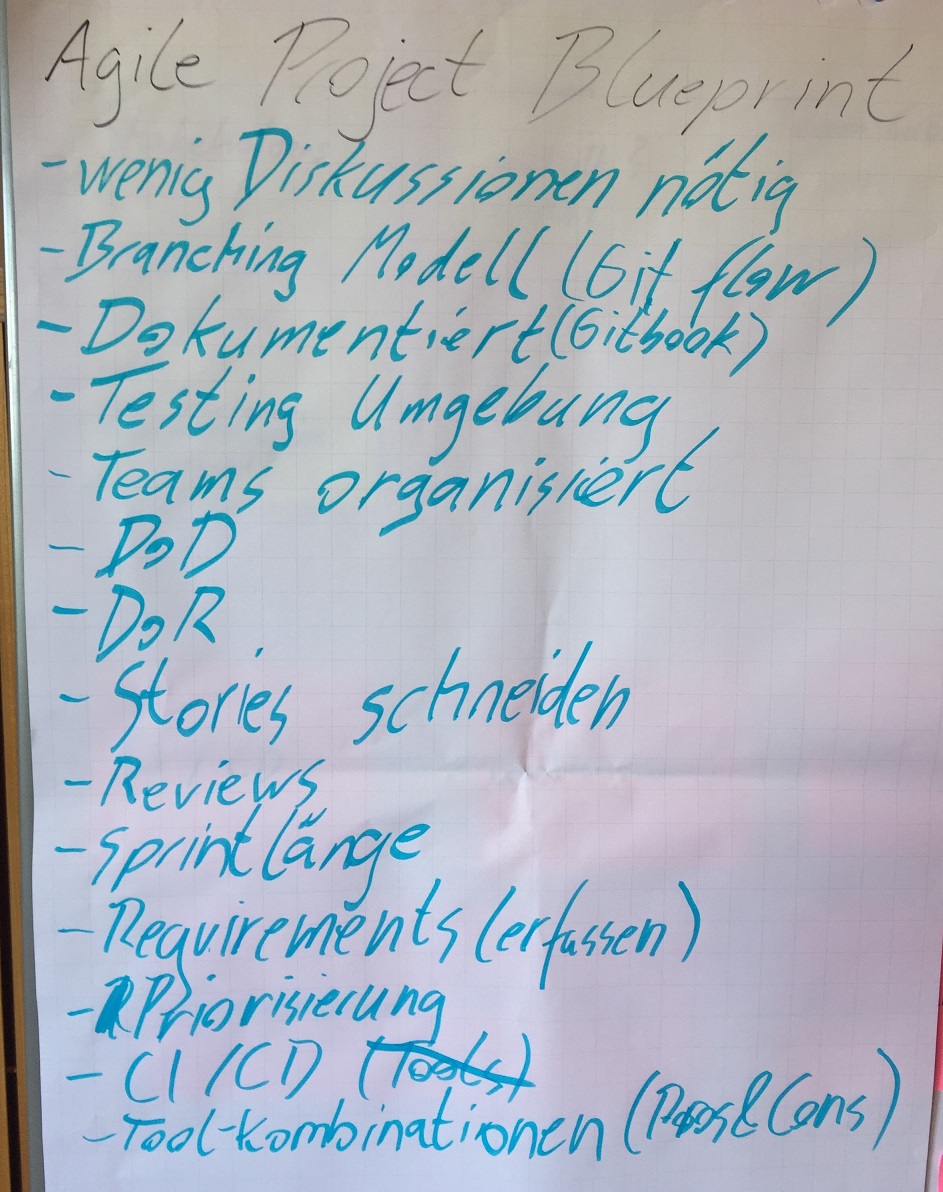 Agile Project Blueprint
- wenig Diskussionen nötig
- Branching Modell (Git flow)
- Dokumentiert (Gitbook)
- Testing Umgebung
- Teams organisiert
- DoD
- DoR
- Stories schneiden
- Reviews
- Sprintlänge
- Requirements (erfassen)
- Priorisierung
- CI/CD (Tools)
- Tool-Kombinationen (Pros & Cons)